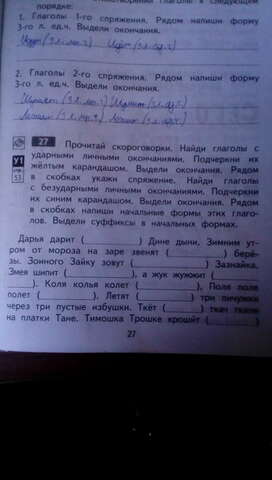 порядке:
1. Глаголы 1-го спряжения. Рядом напиши форму
3-го л. ед.ч. Выдели окончания.
2. Глаголы 2-го спряжения. Рядом напиши форму
3-го л. ед.ч. Выдели окончания.
27 Прочитай скороговорки. Найди глаголы с
У1 ударными личными окончаниями. Подчеркни их
жёлтым карандашом. Выдели окончания. Рядом
53 в скобках укажи спряжение. Найди глаголы
с безударными личными окончаниями. Подчеркни
их синим карандашом. Выдели окончания. Рядом
в скобках напиши начальные формы этих глаго-
лов. Выдели суффиксы в начальных формах.
Дарья дарит ( ) Дине дыни. Зимним ут-
ром от мороза на заре звенят ( ) берё-
зы. Зонного Зайку зовут ( ) Зазнайка.
Змея шипит ( ), а жук жужжит (
). Коля колья колет ( ). Поля поле
полет ( ). Летят ( ) три пичужки
через три пустые избушки. Ткёт ( ) ткач ткани
на платки Тане. Тимошка Трошке крошит ( )
27